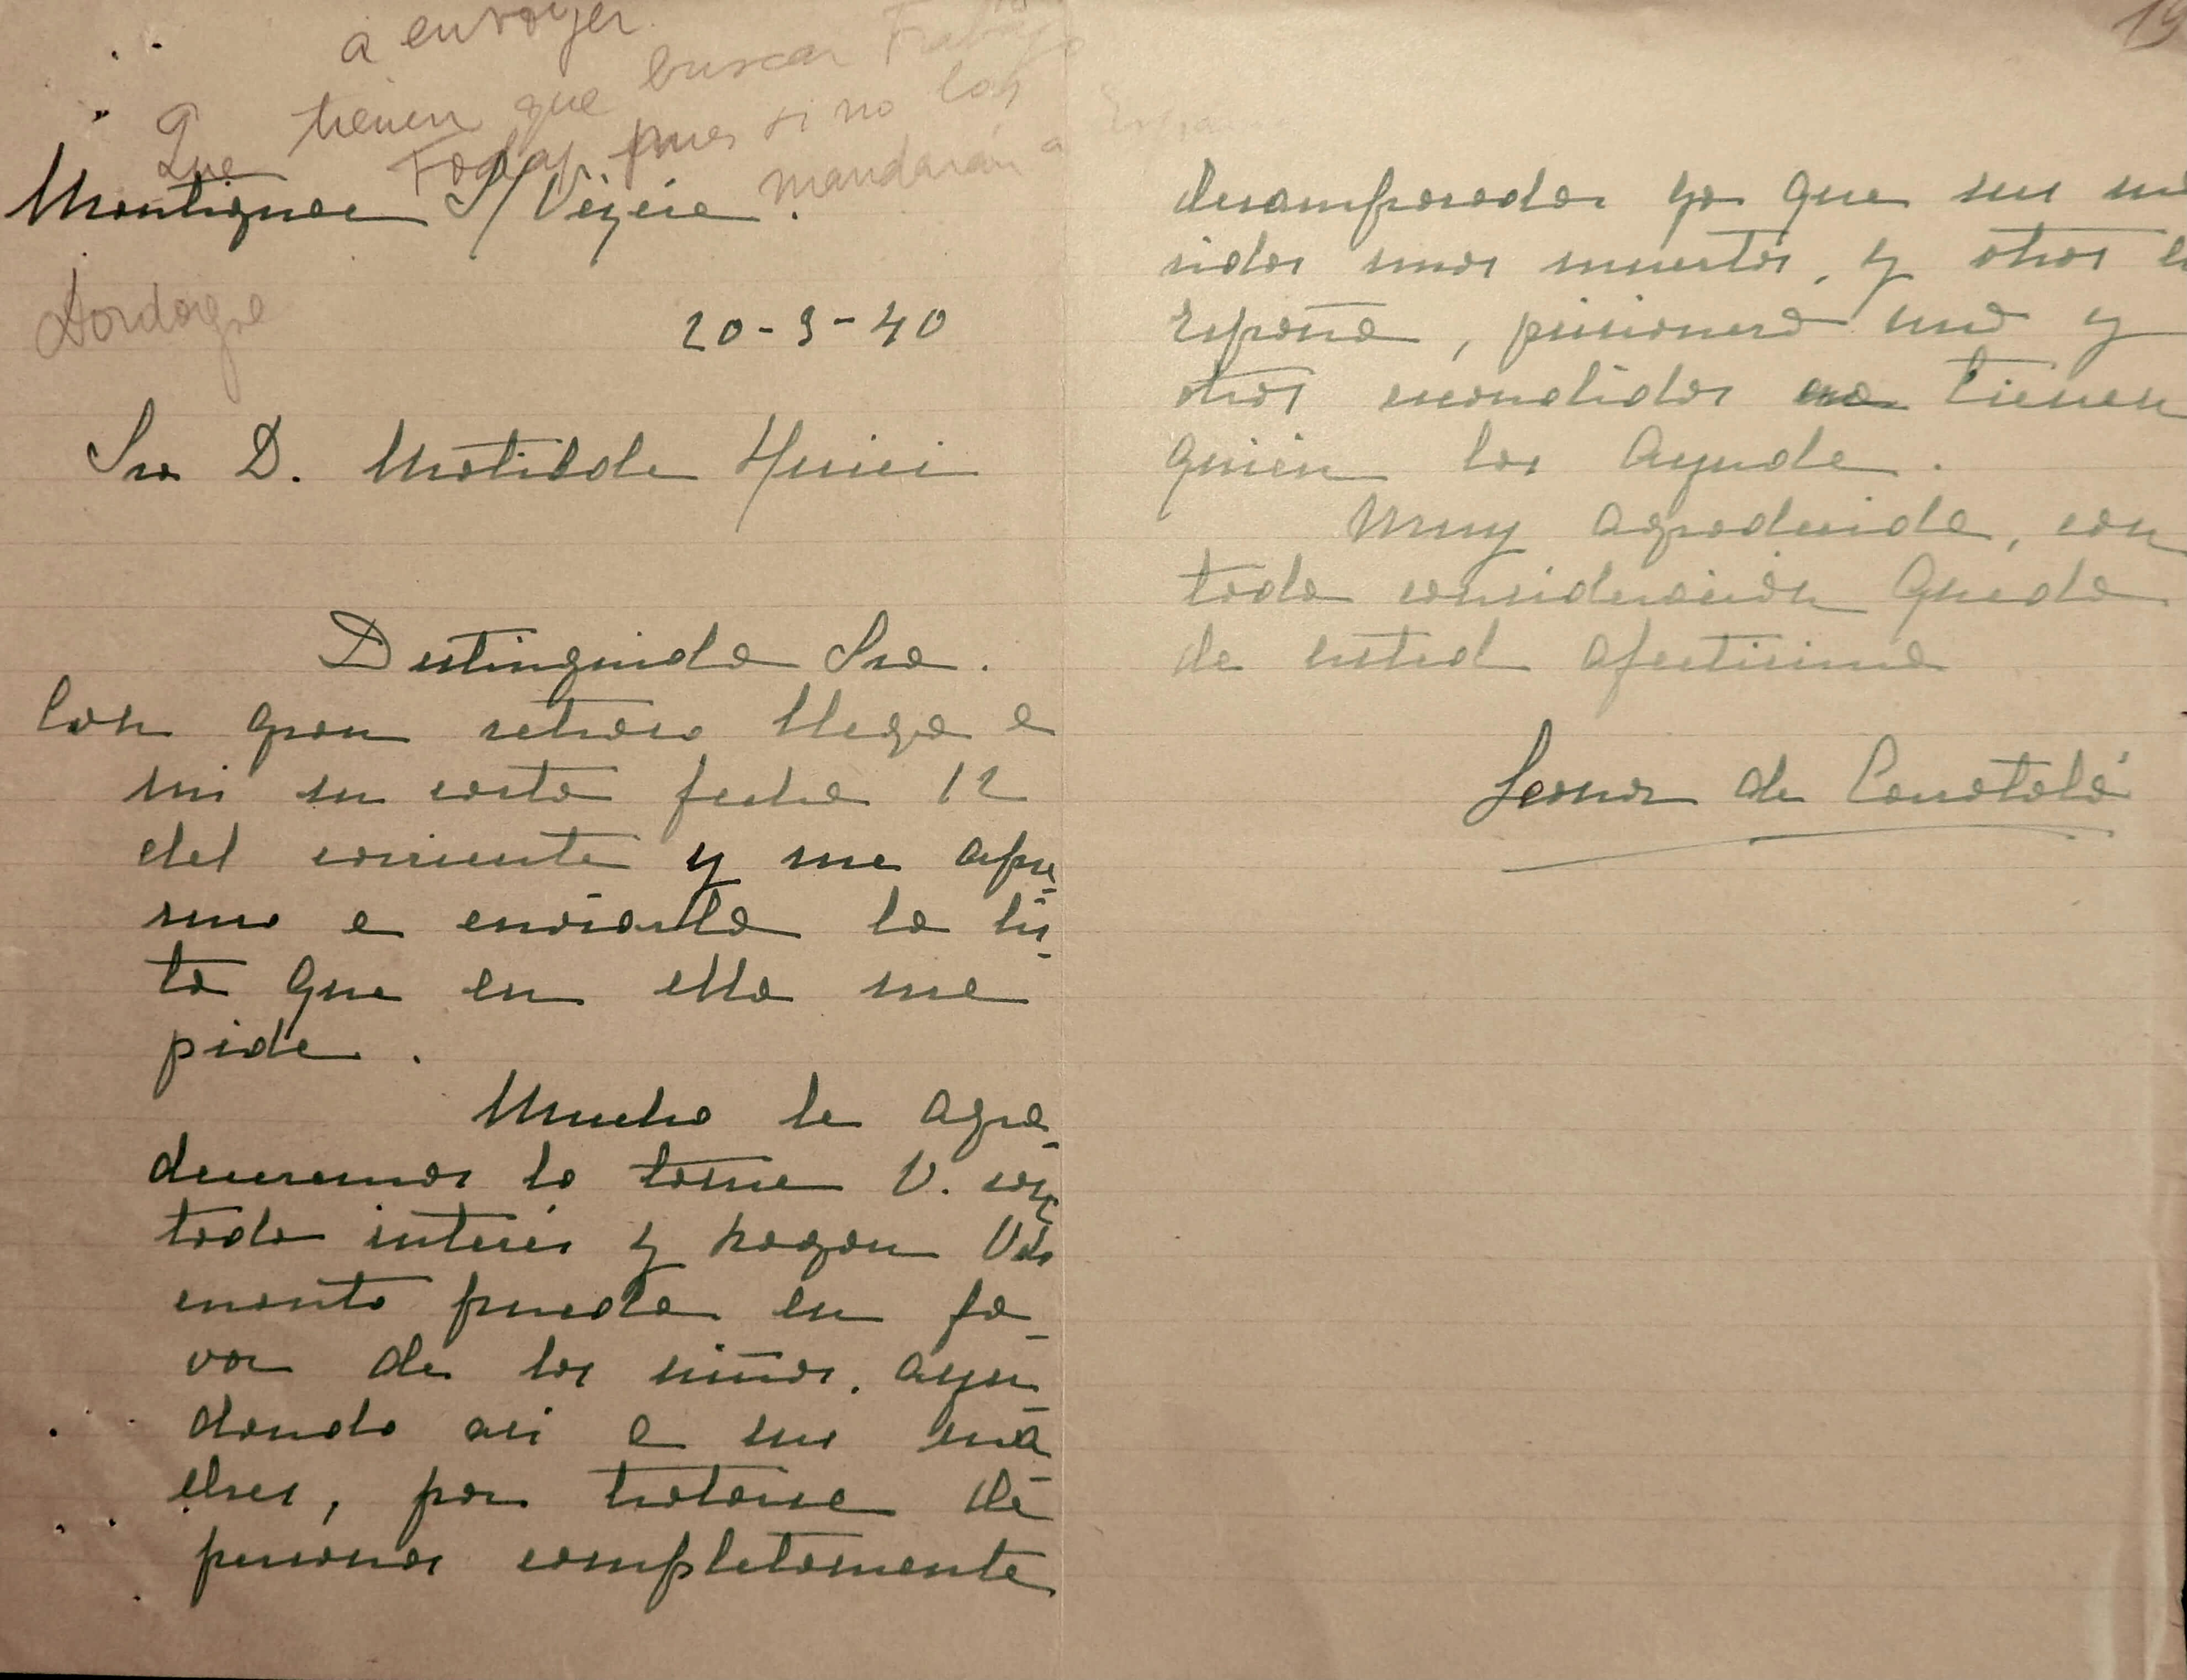 a envoyer
Que tienen que buscar Trabajo
Todas, pues si no las
mandarán a España
Montignac S/Vézère.
Dordogne
20-3-40
Sra D. Matilde Huici
Distinguida Sra.
Con gran retraso llega a
mi su carta fecha 12
del corriente y me apre
suro a enviarla la lis
ta que en ella me
pide.
Mucho le agra
deceremos lo tome V. con
todo interés y hagan Vds
cuanto pueda en fa
vor de los niños. ayu
dando asi a sus ma
dres, por tratarse de
personas completamente
19
desamparadas ya que sus ma
ridos unos muertos, y otros en
España, prisionero uno y
otros escondidos no tienen
quien las ayude.
Muy agradecida, con
toda consideración queda
de usted afectisima
Leonor de